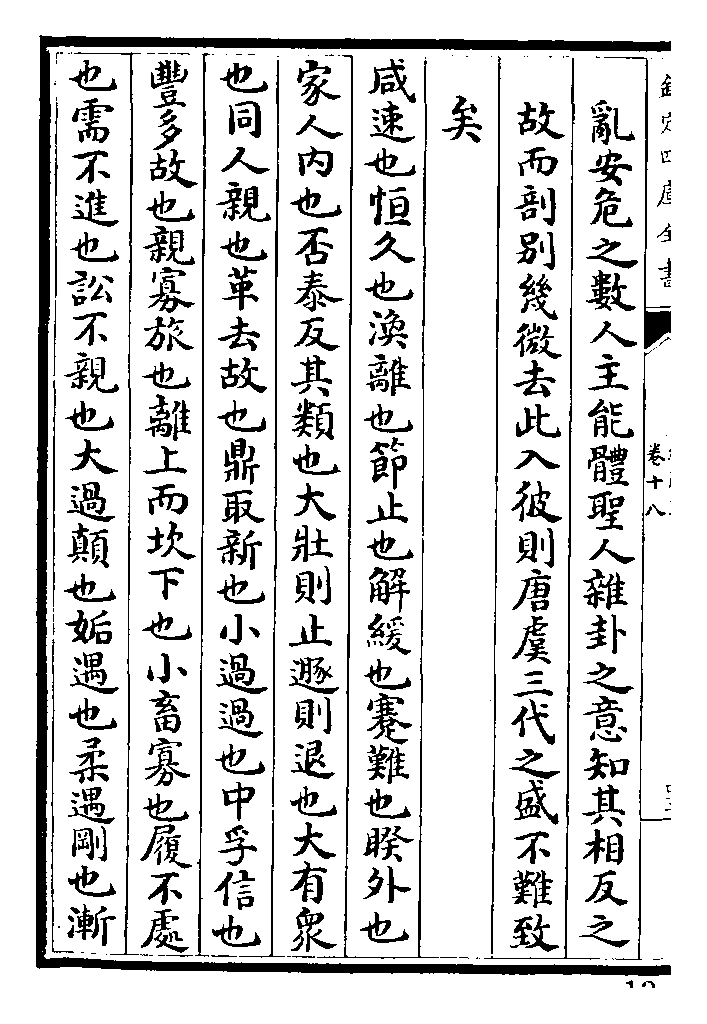 欽定四庫全書
卷十八
亂安危之數人主能體聖人雜卦之意知其相反之
故而剖別幾微去此入彼則唐虞三代之盛不難致
矣
咸速也恒久也渙離也節止也解緩也蹇難也睽外也
家人内也否泰反其類也大壯則止遯則退也大有衆
也同人親也革去故也鼎取新也小過過也中孚信也
豐多故也親寡旅也離上而坎下也小畜寡也履不處
也需不進也訟不親也大過顛也姤遇也柔遇剛也漸